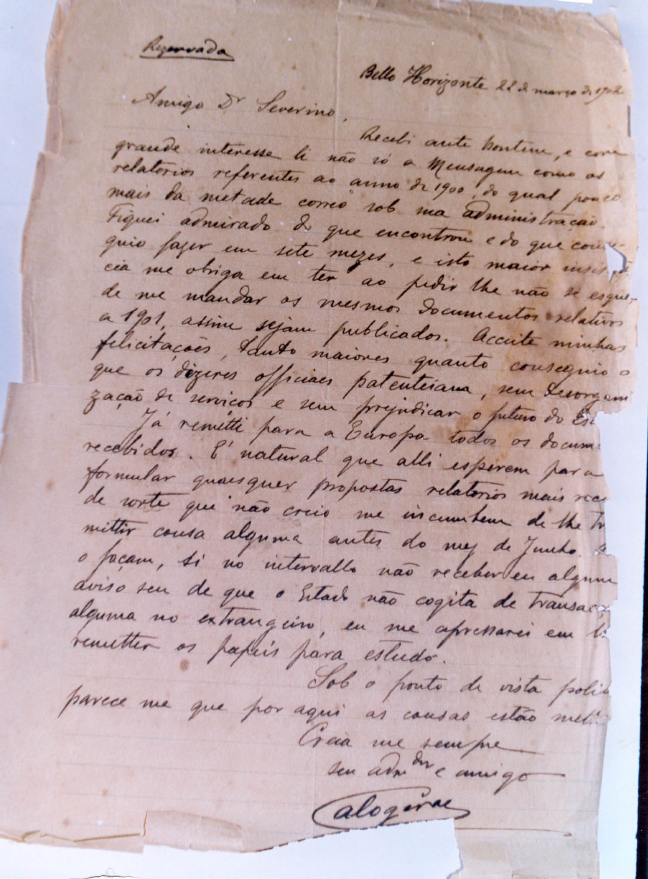 Reservada
Bello Horizonte 22 de março de 1902
Amigo Dr Severino,
Recebi ante hontem, e com
grande interesse li não só a Mensagem como os
relatorios referentes ao anno de 1900, do qual pouco
mais da metade correo sob sua administração.
Fiquei admirado do que encontrou e do que conse-
guio fazer em sete mezes, e isto maior
cia me obriga em ter ao pedir lhe não se esque-
de me mandar os mesmos documentos relativos
a 1901, assim sejam publicados. Acceite minhas
felicitações, tanto maiores quanto conseguio o
que os dizeres officiaes patenteiam, sem desorgani
zação de serviços e sem prejudicar o futuro do Es
Já remetti para a Europa todos os docum
recebidos. É natural que alli esperem para
formular quaesquer propostas relatorios mais rec
de sorte que não creio me incumbem de lhe tr
mittir cousa alguma antes do mez de Junho.
o façam, si no intervallo não receberem algum
aviso seu de que o Estado não cogita de transac
alguma no extrangeiro, eu me apressarei em
remetter os papeis para estudo.
Sob o ponto de vista poli
parece me que por aqui as cousas estão
Creia me sempre
seu admdor e amigo
Calogeras